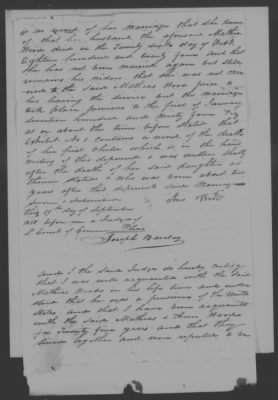 is no record of her marriage that she knows
of that her husband the aforesaid Mathew
Wood died on the Twenty sixth day of Feb.
Eighteen hundred and thirty four and that
she has not been married again but still
remains his widow that she was not mar
ried to the said Mathew Wood prior to
his leaving the service but the marriage
took place previous to the first of January
seventeen hundred and ninety four viz
at or about the time before stated that
Exhibit A contains a record of the death
of her first child which is in the hand
writing of this deponent & was written shortly
after the death of her said daughter as
therein stated & who was born about two
years after this deponents said Marriage
Sworn & Subscribed
this 19th day of September
1838 before me a Judge of
D Court of Common Pleas
Joseph
and I the said Judge do hereby certify
that I was well acquainted with the said
Mathew Wood in his life time and under
stood that he was a pensioner of the United
States and that I have been acquainted
with the said Mathew & Wood
for Twenty five years and that they
lived together and were reputed to be